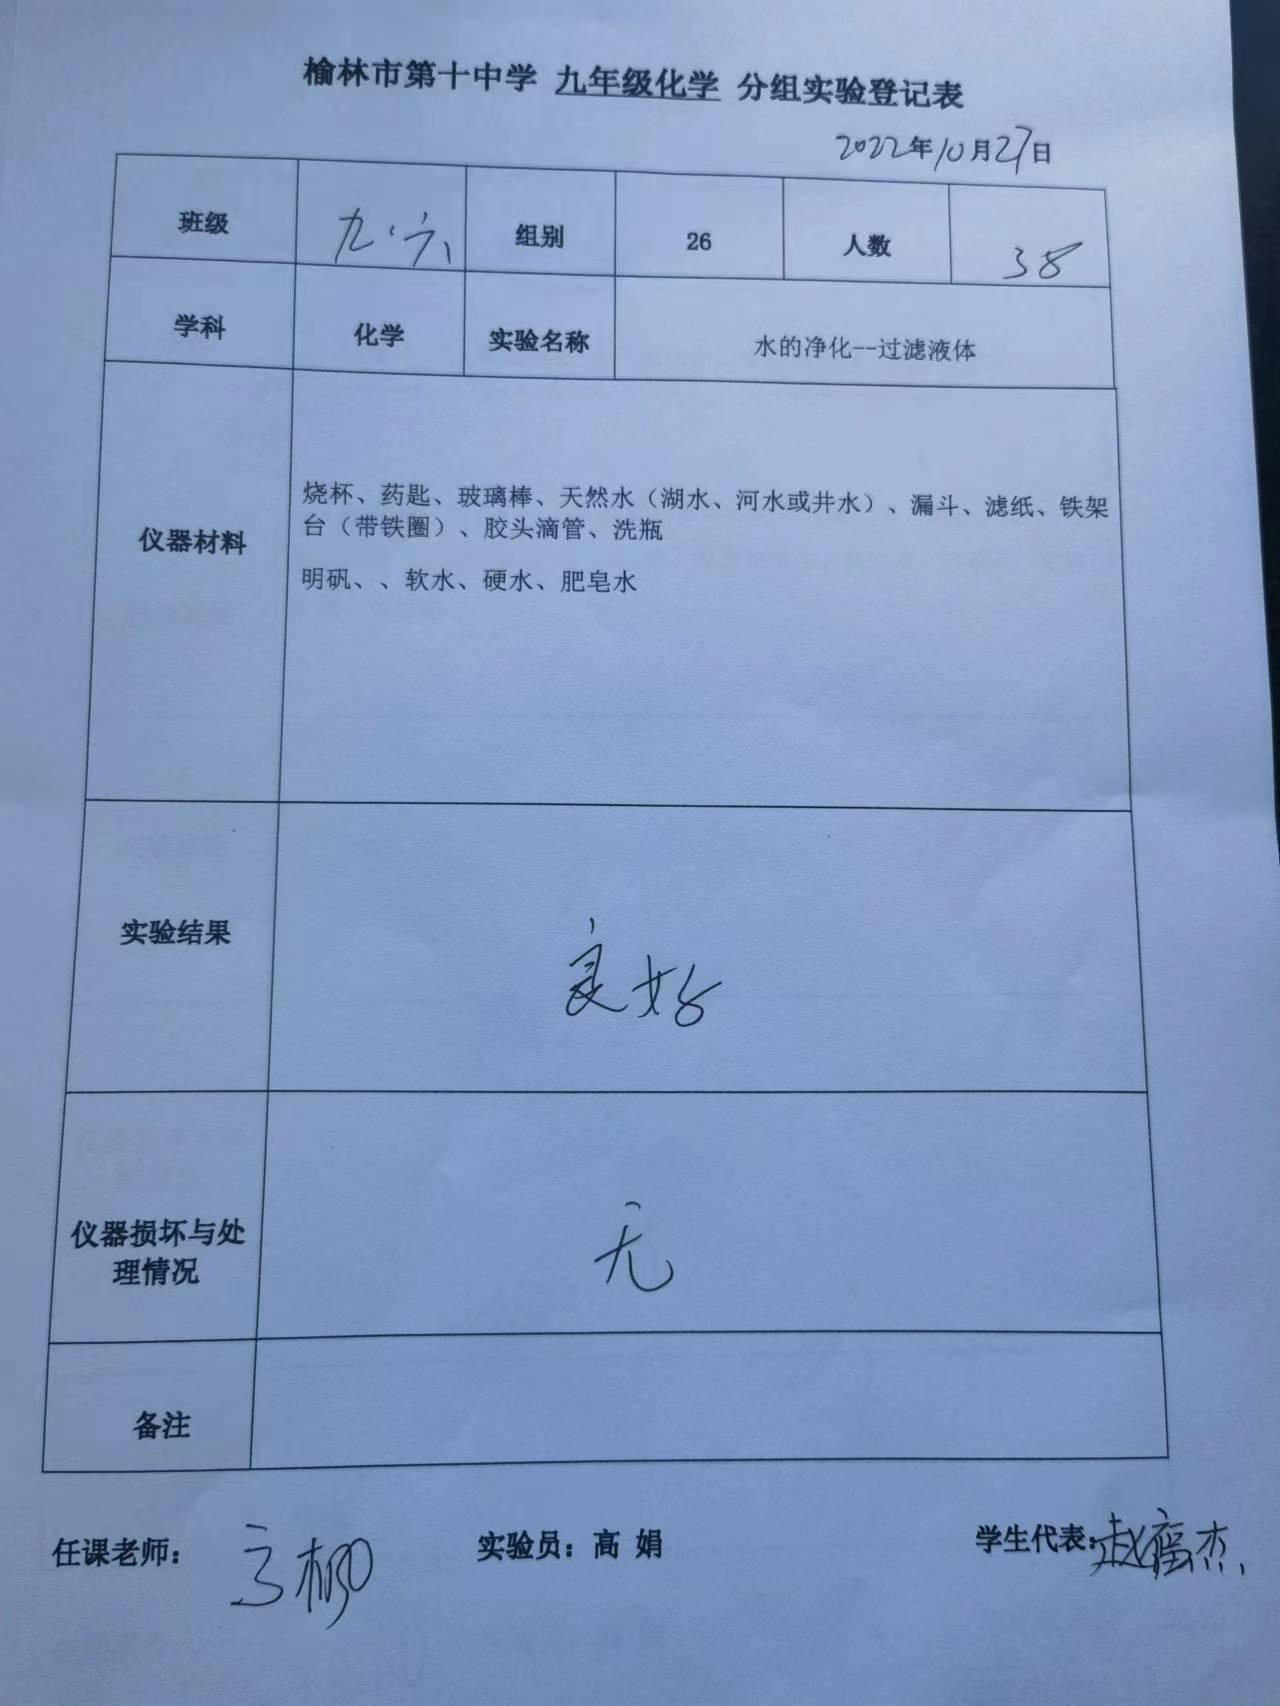 榆林市第十中学 九年级化学 分组实验登记表
2022年10月27日
班级 九.六 组别 26 人数 38
学科 化学 实验名称 水的净化--过滤液体
仪器材料
烧杯、药匙、玻璃棒、天然水（湖水、河水或井水）、漏斗、滤纸、铁架
台（带铁圈）、胶头滴管、洗瓶
明矾、、软水、硬水、肥皂水
实验结果 良好
仪器损坏与处
理情况
无
备注
任课老师： 实验员：高 娟 学生代表：赵福杰